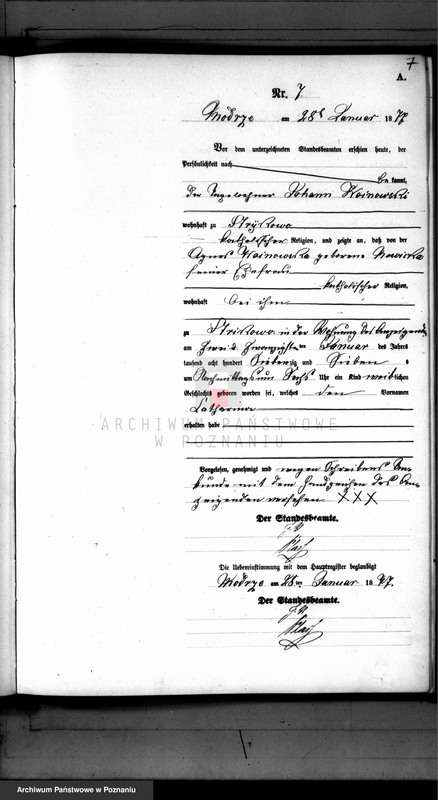 7
A.
Nr. 7.
Modrze am 28t Januar 1877
Vor dem unterzeichneten Standesbeamten erschien heute, der
Persönlichkeit nach
be kannt,
der Tagelöhner Johann Woinowski
wohnhaft zu Strykowo
katholischer Religion, und zeigte an, daß von der
Agnes Woinowska geborene Nowicka
seiner Ehefrau
katholischer Religion,
wohnhaft bei ihm
zu Strikowo in der Wohnung des Anzeigenden
am zwei u. zwanzigsten Januar des Jahres
tausend acht hundert Siebenzig und Sieben
um Nachmittags um Sechs Uhr ein Kind weiblichen
Geschlechts geboren worden sei, welches den Vornamen
Catharina
erhalten habe
ARCHIWUM PAŃSTWOWE
W POZNANIU
Vorgelesen, genehmigt und wegen Schreibens Un-
kunde mit dem Handzeichen des An-
zeigenden versehen XXX
Der Standesbeamte.
Die Uebereinstimmung mit dem Hauptregister beglaubigt
Modrze am 28 ten Januar 1877.
Der Standesbeamte.
Archiwum Państwowe w Poznaniu